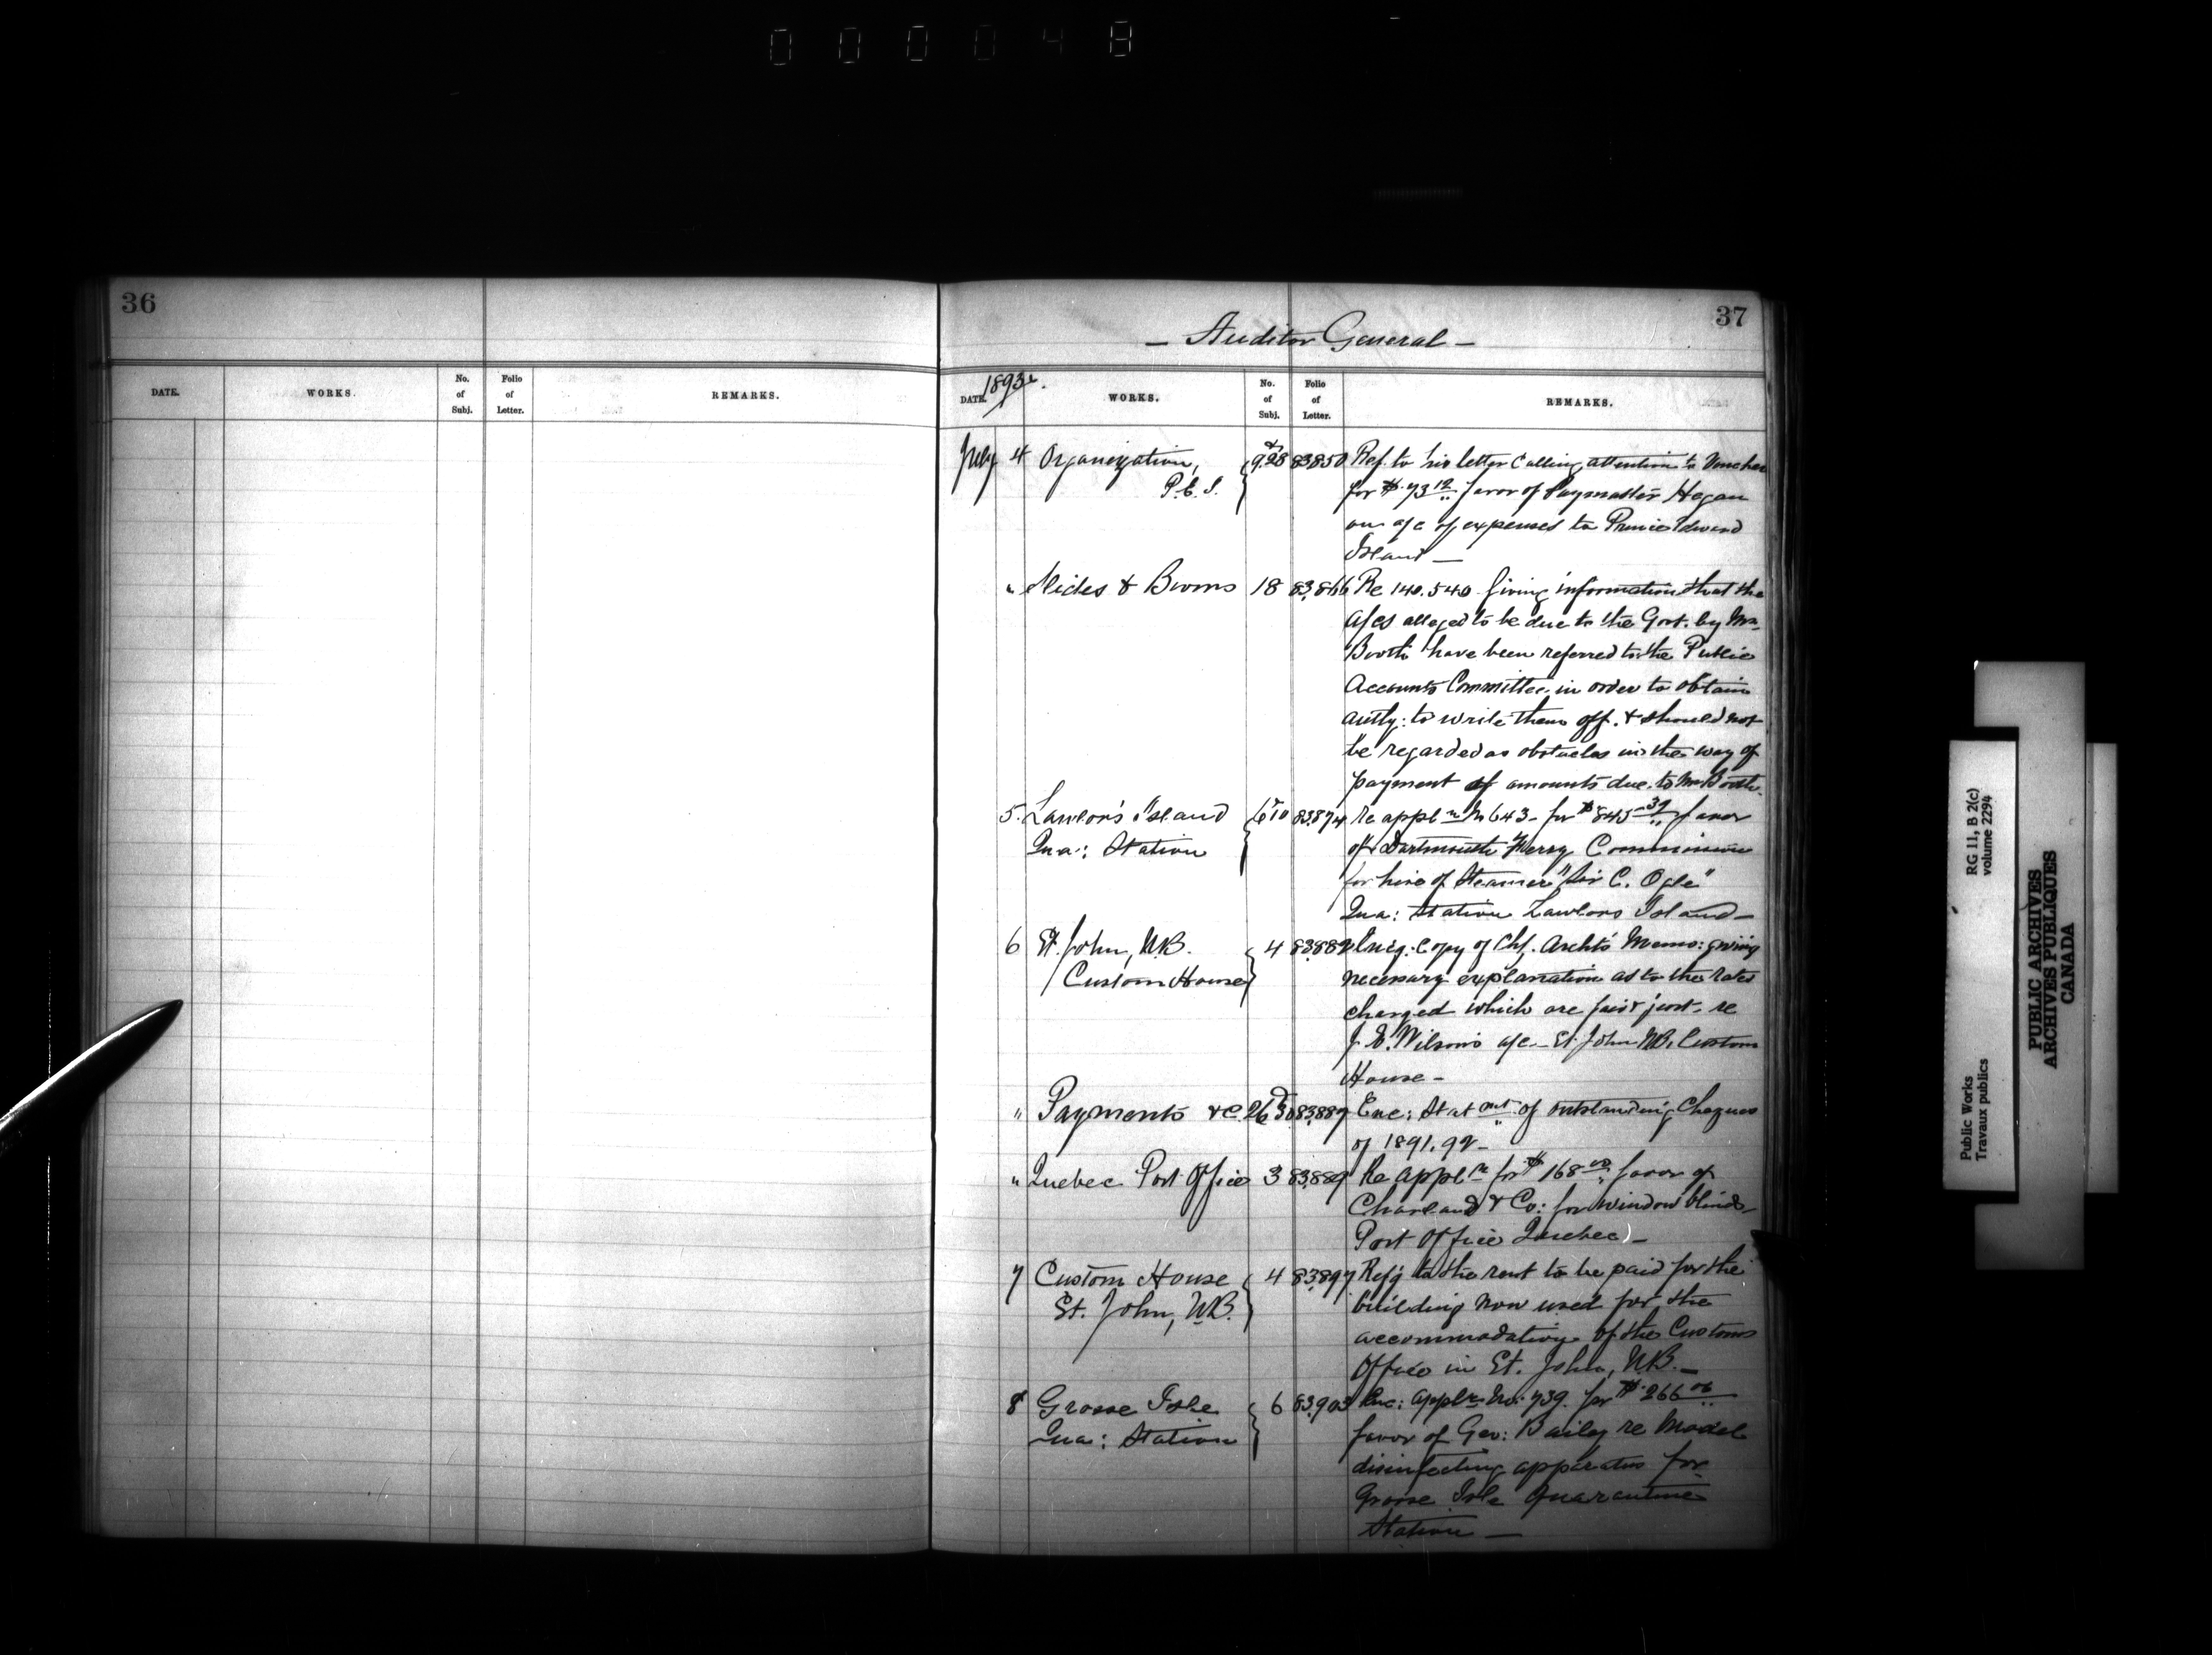 000048
36
37
— Auditor General —
DATE. WORKS. No. of Subj. Folio of Letter. REMARKS.
1893
DATE. WORKS. No. of Subj. Folio of Letter. REMARKS.
July 4 Organization, 9&28 83850 Ref. to his letter calling attention to Voucher
P.E.I. for $73.12 favor of Paymaster Hegan
on a/c of expenses to Prince Edward
Island —
" Slides & Booms 18 83,866 Re 140.540 giving information that the
a/cs alleged to be due to the Govt. by Mr.
Booth have been referred to the Public
Accounts Committee in order to obtain
authy: to write them off. & should not
be regarded as obstacles in the way of
payment of amounts due to Mr Booth.
5. Lawlor's Island 6&10 83,874 Re appln No 643 - for $845.39 favor
Qua: Station of Dartmouth Ferry Commission
for hire of Steamer "Sir C. Ogle"
Qua: Station Lawlors Island —
6 St. John, N.B. 4 83882 Encg. Copy of Chf. Archts Memo: giving
Custom House necessary explanation as to the rates
charged which are fair & just - re
J. E. Wilson's a/c - St. John NB. Custom
House -
" Payments &c. 26&30 83,887 Enc: Statmt of outstanding Cheques
of 1891.92 -
" Quebec Post Office 3 83,889 Re appln for $168.00 favor of
Charland & Co: for window blinds
Post Office Quebec) —
7 Custom House 4 83,897 Refg to the rent to be paid for the
St. John, N.B. building now used for the
accommodation of the Customs
Office in St. John, N.B. —
8 Grosse Isle 6 83,903 Enc: appln No: 739. for $266.06
Qua: Station favor of Geo: Bailey re Model
disinfecting apparatus for
Grosse Isle Quarantine
Station —
Public Works
Travaux publics
RG 11, B 2(c)
volume 2294
PUBLIC ARCHIVES
ARCHIVES PUBLIQUES
CANADA